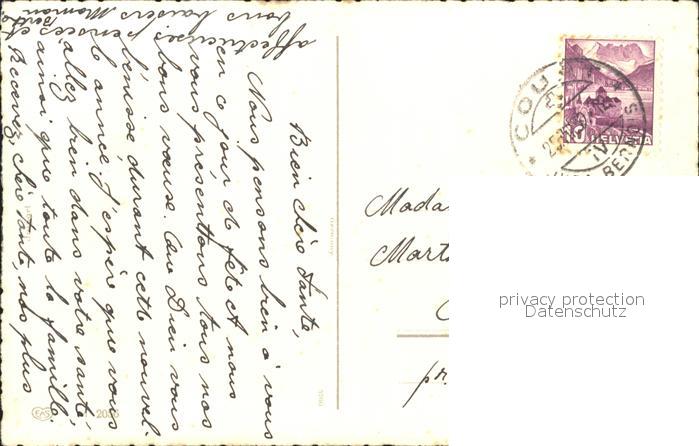 Bien chère Tante,
Nous pensons bien à vous
en ce jour de fête et nous
vous présentons tous nos
bons vœux. Que Dieu vous
bénisse durant cette nouvel-
le année. J'espère que vous
allez bien dans votre santé,
ainsi que toute la famille.
Recevez, chère tante, nos plus
affectueuses pensées et
bons baisers Maman
Mada
Mart
pr.
COU
BERNOIS
HELVETIA
10
Germany
EAS
privacy protection
Datenschutz